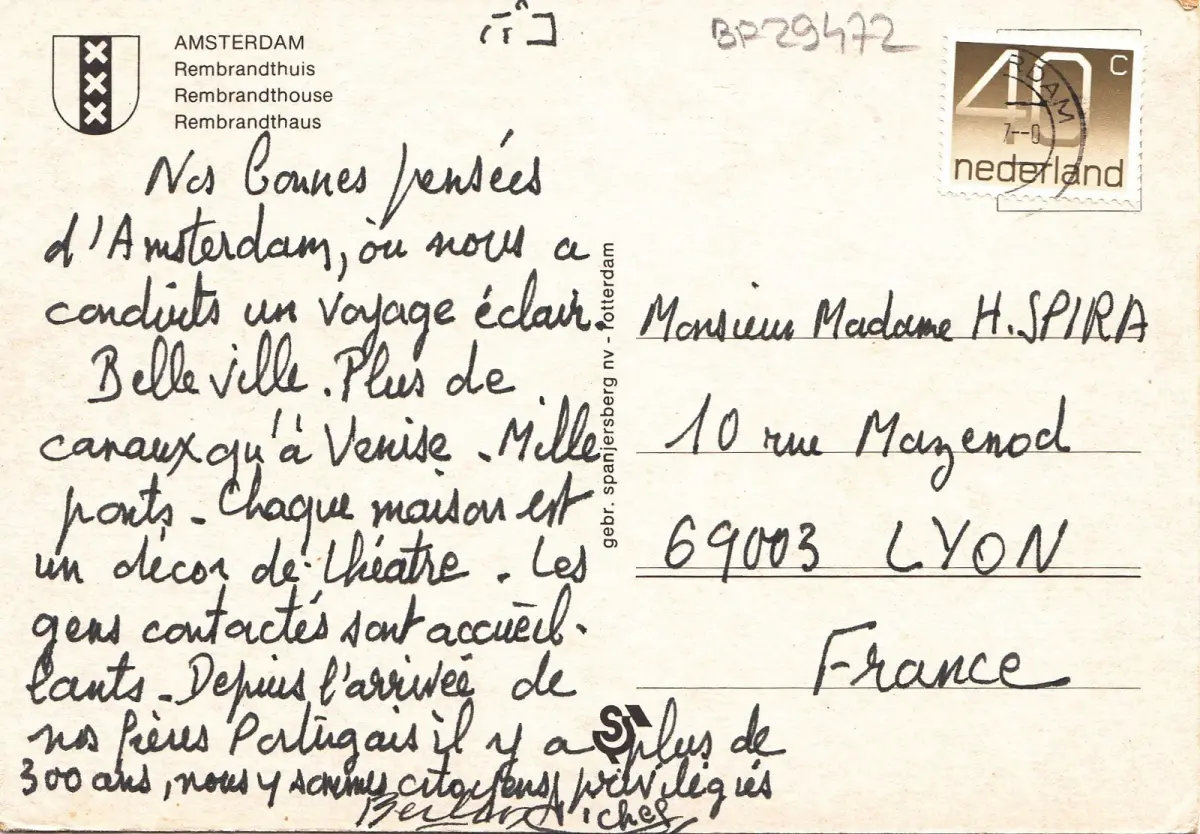 BP29472
AMSTERDAM
Rembrandthuis
Rembrandthouse
Rembrandthaus
40 c
nederland
RDAM
Nos bonnes pensées
d'Amsterdam, où nous a
conduits un voyage éclair.
Belle ville. Plus de
canaux qu'à Venise. Mille
ponts - Chaque maison est
un décor de théâtre. Les
gens contactés sont accueil-
lants - Depuis l'arrivée de
nos frères Portugais il y a plus de
300 ans, nous y sommes citoyens privilégiés
gebr. spanjersberg nv - rotterdam
Monsieur Madame H. SPIRA
10 rue Mazenod
69003 LYON
France